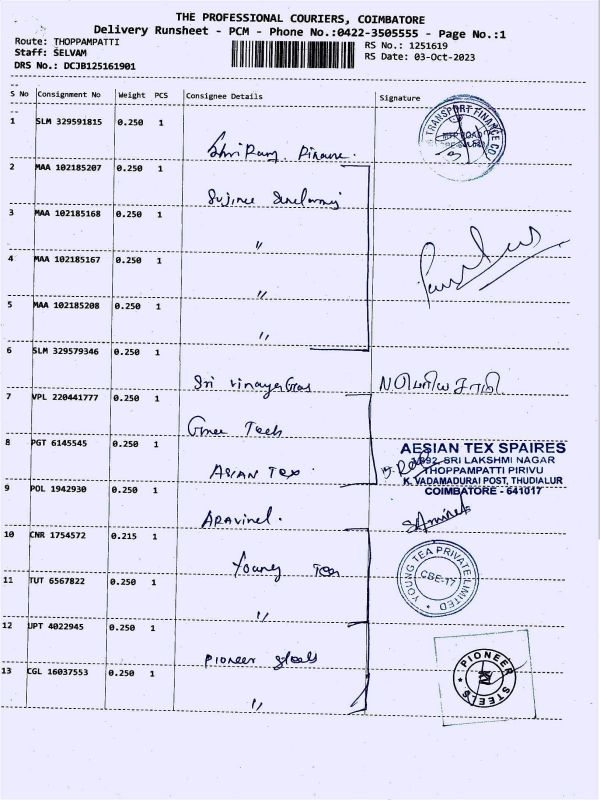 THE PROFESSIONAL COURIERS, COIMBATORE
Delivery Runsheet - PCM - Phone No.:0422-3505555 - Page No.:1
Route: THOPPAMPATTI
Staff: SELVAM
DRS No.: DCJB125161901
RS No.: 1251619
RS Date: 03-Oct-2023
S No Consignment No Weight PCS Consignee Details Signature
1 SLM 329591815 0.250 1
TRANSPORT FINANCE CO
Shri Ram Finance.
2 MAA 102185207 0.250 1
3 MAA 102185168 0.250 1
"
4 MAA 102185167 0.250 1
"
5 MAA 102185208 0.250 1
"
6 SLM 329579346 0.250 1
Sri Vinayaga
7 VPL 220441777 0.250 1
Tech
8 PGT 6145545 0.250 1
ASIAN Tex.
AESIAN TEX SPAIRES
SRI LAKSHMI NAGAR
THOPPAMPATTI PIRIVU
K. VADAMADURAI POST, THUDIALUR
COIMBATORE - 641017
9 POL 1942930 0.250 1
Aravind.
10 CNR 1754572 0.215 1
Young Tea
YOUNG TEA PRIVATE LIMITED
CBE-17
11 TUT 6567822 0.250 1
"
12 UPT 4022945 0.250 1
Pioneer Steels
PIONEER STEELS
13 CGL 16037553 0.250 1
"